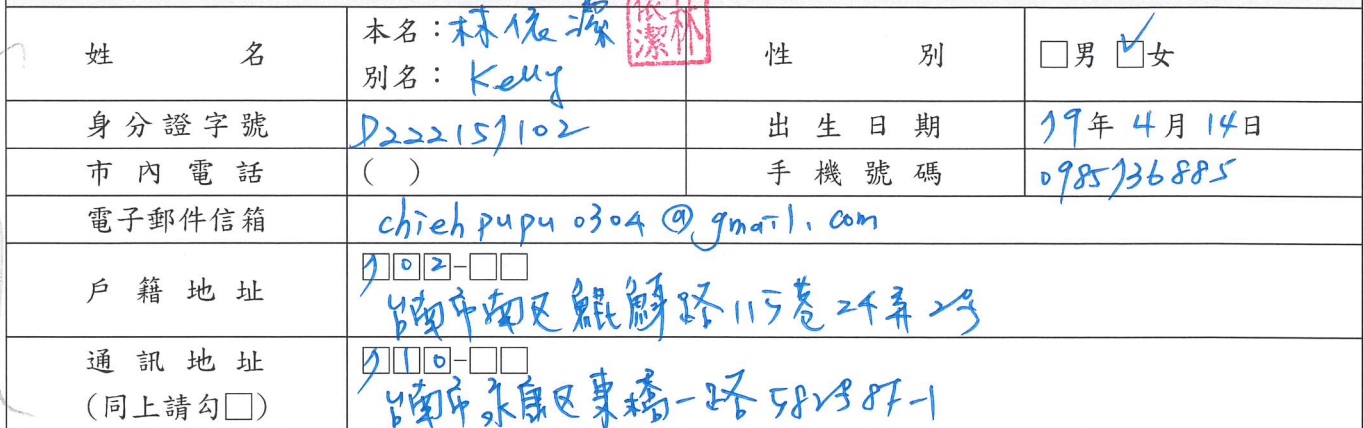 姓名 本名：林依潔 林依潔 性別 □男 ☑女
別名：Kelly
身分證字號 D222157102 出生日期 79年4月14日
市內電話 ( ) 手機號碼 0985736885
電子郵件信箱 chiehpupu0304@gmail.com
戶籍地址 702-□□
台南市南区鯤鯓路115巷24弄2号
通訊地址 710-□□
(同上請勾□) 台南市永康区東橋一路582号8F-1